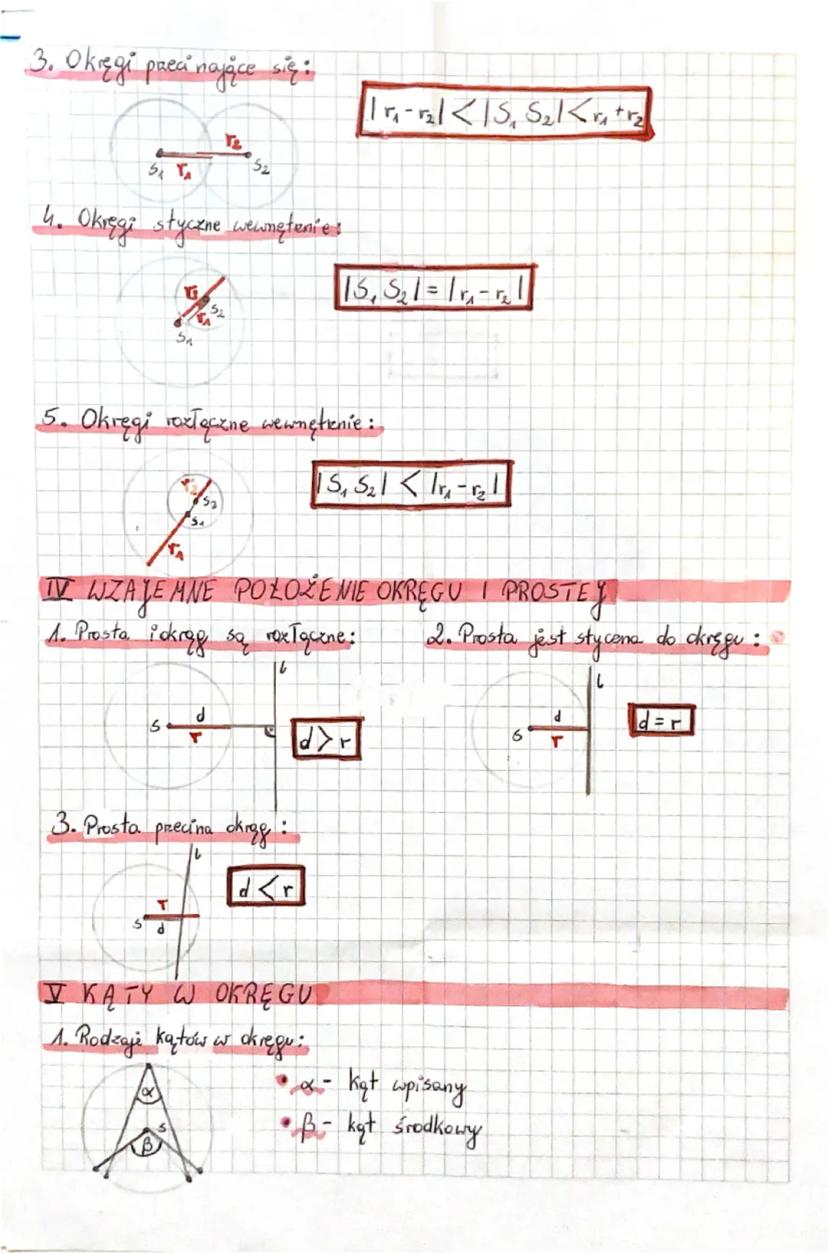 3. Okręgi przecinające się:
|r₁-r₂| < |S₁ S₂| < r₁+r₂
r₂
S₁ r₁ S₂
4. Okręgi styczne wewnętrznie:
|S₁ S₂| = |r₁-r₂|
r₂
S₂
r₁
S₁
5. Okręgi rozłączne wewnętrznie:
|S₁ S₂| < |r₁-r₂|
r₂
S₂
S₁
r₁
IV WZAJEMNE POŁOŻENIE OKRĘGU I PROSTEJ
1. Prosta i okrąg są rozłączne:
2. Prosta jest styczna do okręgu:
l
d
S
r
d > r
l
d
S
r
d = r
3. Prosta przecina okrąg:
l
r
S d
d < r
V KĄTY W OKRĘGU
1. Rodzaje kątów w okręgu:
α
S
β
• α - kąt wpisany
• β - kąt środkowy